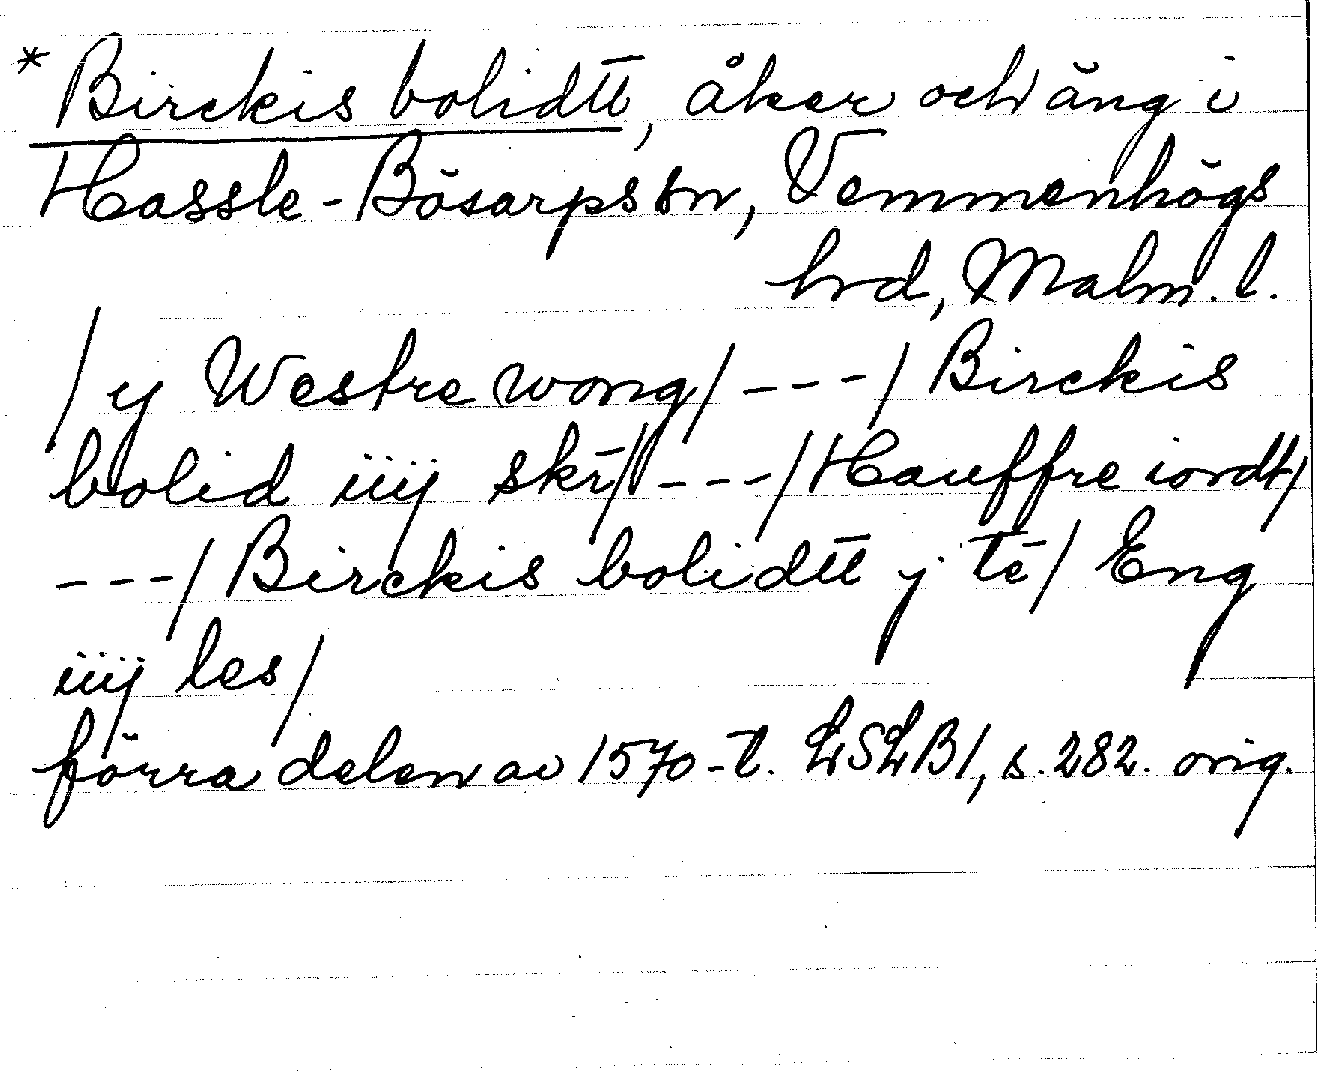 * Birckis bolidtt, åker och äng i
Hassle-Bösarps sn, Vemmenhögs
hd, Malm. l.
/ y Westre wong/ ---/ Birckis
bolid iiij skr̄/ ---/ Hauffre iordt/
---/ Birckis bolidtt j tē/ Eng
iiij les/
förra delen av 1570-t. LSLB 1, s. 282. orig.